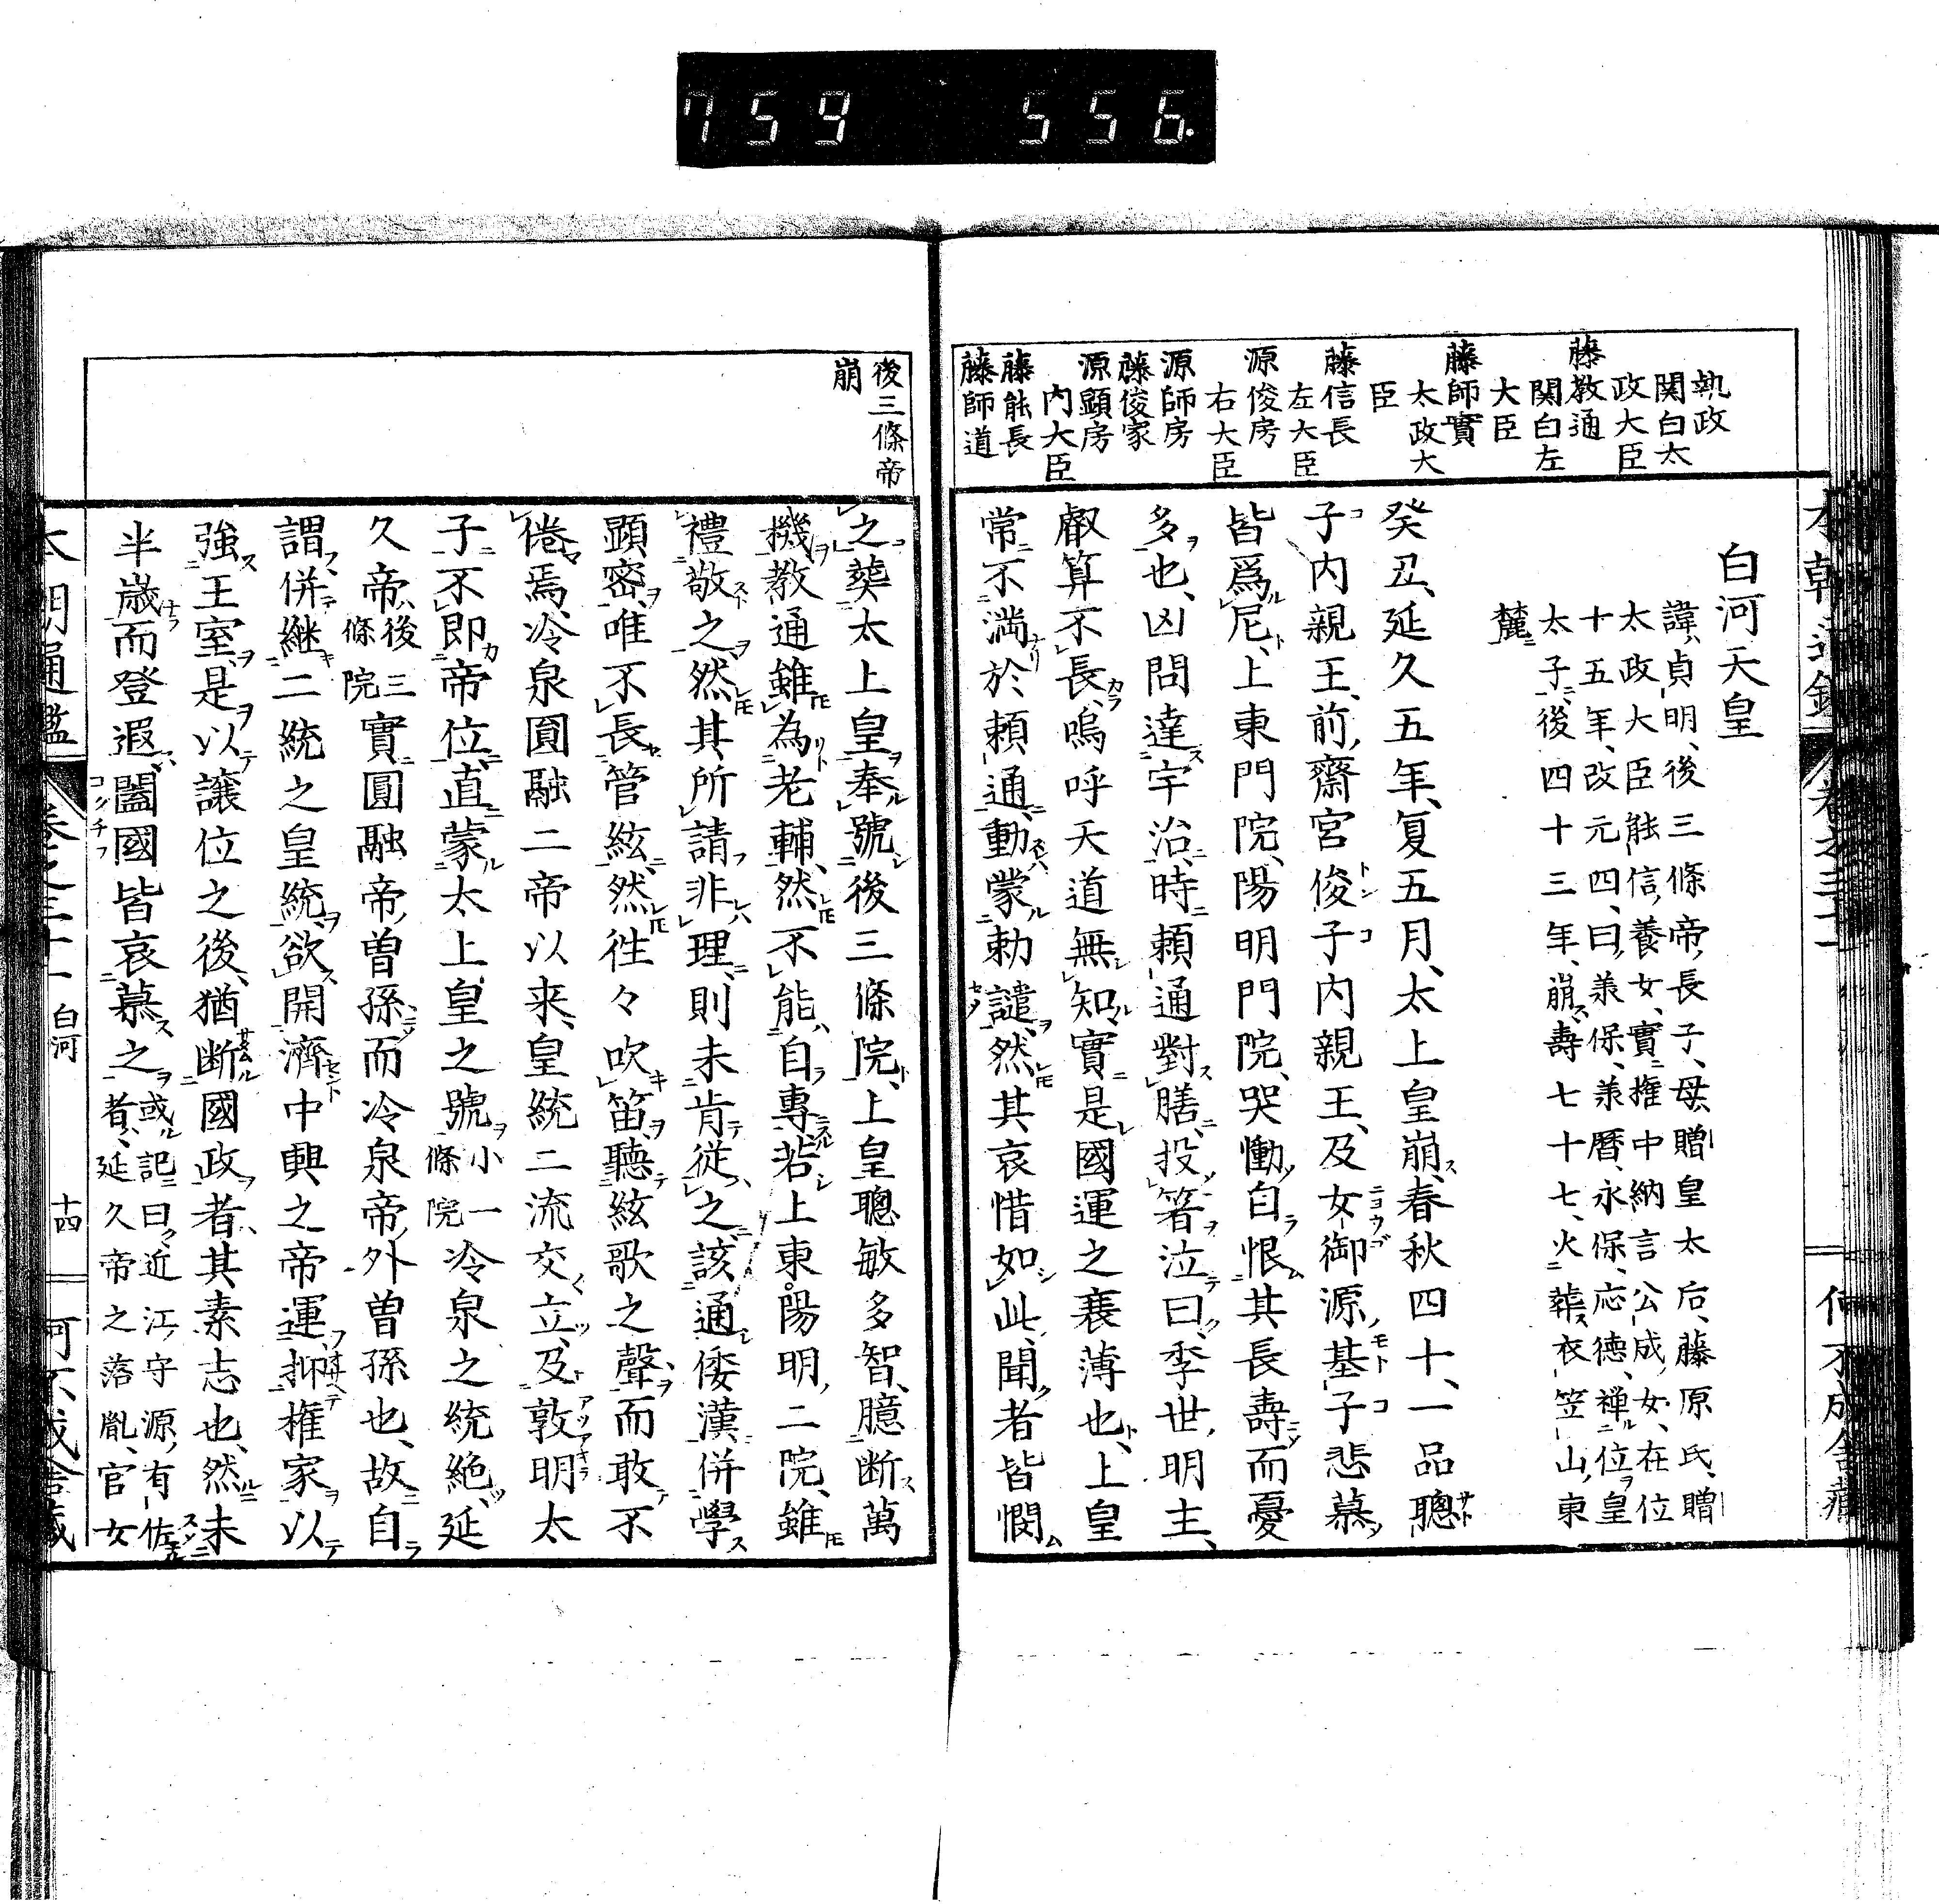 759 556.
執政
関白太
政大臣
藤教通
関白左
大臣
藤師實
太政大
臣
藤信長
左大臣
源俊房
右大臣
源師房
藤俊家
源顕房
内大臣
藤能長
藤師道
白河天皇
諱貞明、後三條帝長子、母贈皇太后、藤原氏、贈
太政大臣能信養女、實権中納言公成女、在位
十五年、改元四、曰承保、承暦、永保、応徳、禅位皇
太子、後四十三年、崩、壽七十七、火葬衣笠山東
麓
癸丑、延久五年、夏五月、太上皇崩、春秋四十、一品聰
子内親王、前齋宮俊子内親王、及女御源基子悲慕
皆爲尼、上東門院、陽明門院、哭慟、自恨其長壽而憂
多也、凶問達宇治、時頼通對膳、投箸泣曰、季世明主、
叡算不長、嗚呼天道無知、實是國運之衰薄也、上皇
常不満於頼通、動蒙勅譴、然其哀惜如此、聞者皆憫
後三條帝
崩
之、葬太上皇、奉號後三條院、上皇聰敏多智、臆断萬
機、教通雖為老輔、然不能自專、若上東陽明二院、雖
禮敬之、然其所請非理、則未肯従之、該通倭漢、併學
顕密、唯不長管絃、然往々吹笛、聽絃歌之聲、而敢不
倦焉、冷泉圓融二帝以来、皇統二流交立、及敦明太
子不即帝位、直蒙太上皇之號小一條院冷泉之統絶、延
久帝後三條院實圓融帝曽孫、而冷泉帝外曽孫也、故自
謂、併継二統之皇統、欲開濟中興之帝運、抑権家以
強王室、是以譲位之後、猶断國政者、其素志也、然未
半歳而登遐、闔國皆哀慕之、或記曰、近江守源有佐
者、延久帝之落胤、官女
本朝通鑑 巻之三十一 白河 十四